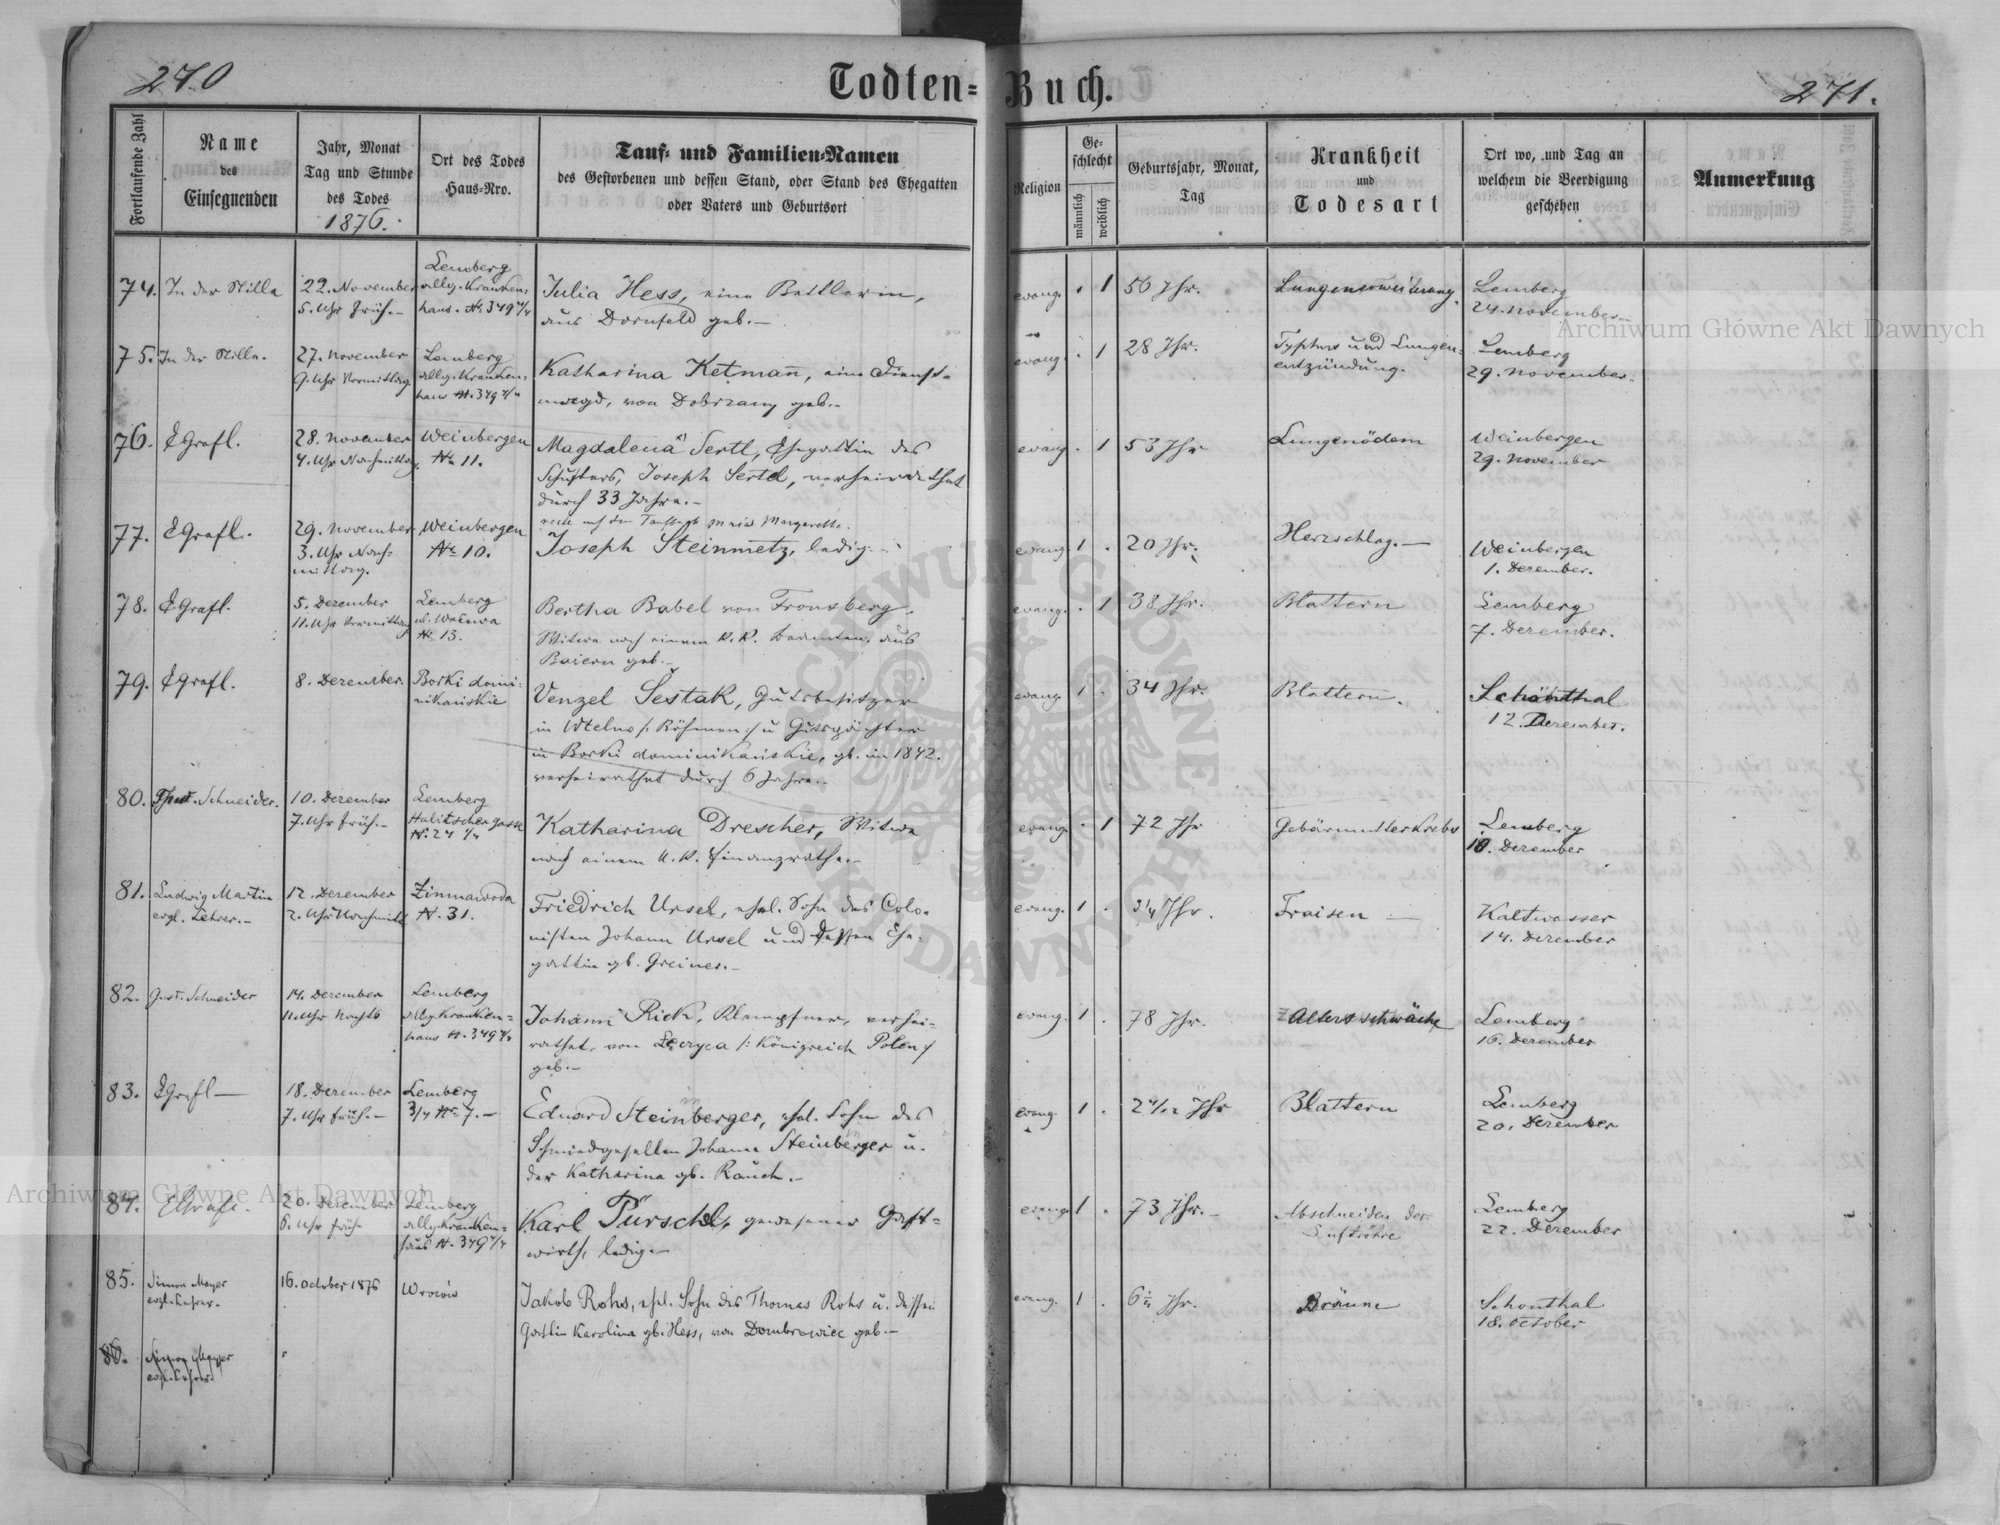 270
Todten-
Buch.
271.
Fortlaufende Zahl
Name
des
Einsegnenden
Jahr, Monat
Tag und Stunde
des Todes
1876.
Ort des Todes
Haus-Nro.
Tauf- und Familien-Namen
des Gestorbenen und dessen Stand, oder Stand des Ehegatten
oder Vaters und Geburtsort
Religion
Ge-
schlecht
männlich
weiblich
Geburtsjahr, Monat,
Tag
Krankheit
und
Todesart
Ort wo, und Tag an
welchem die Beerdigung
geschehen
Anmerkung
74. In der Stille
22. November
5. Uhr Früh.-
Lemberg
allg. Kranken-
haus. No 349 4/4
Julia Hess, eine Bettlerin,
aus Dornfeld geb.-
evang. . 1 50 Jhr.
Lungenerweiterung.
Lemberg
24. November.-
75. In der Stille.
27. November
9. Uhr Vormittag
Lemberg
allg. Kranken-
haus N. 349 4/4
Katharina Ketman̄, eine Dienst-
magd, von Dobrzany geb.-
evang. . 1 28 Jhr.
Typhus und Lungen-
entzündung.
Lemberg
29. November.
76. EGrafl.
28. November
4. Uhr Nachmittag
Weinbergen
No 11.
Magdalena Sertl, Ehegattin des
Schusters, Joseph Sertl, verheirathet
durch 33 Jahre.-
evang . 1 53 Jhr
Lungenödem
Weinbergen
29. November
77. EGrafl.
29. November
3. Uhr Nach-
mittag.
Weinbergen
No 10.
Maria Margaretha.
Joseph Steinmetz, ledig.-
evang. 1 . 20 Jhr.
Herzschlag.-
Weinbergen
1. Dezember.
78. EGrafl.
5. Dezember
11. Uhr Vormittag
Lemberg
No 13.
Bertha Babel von Fronsberg,
Witwe nach einem K. K. Beamten, aus
Baiern geb.-
evang. . 1 38 Jhr.
Blattern
Lemberg
7. Dezember.
79. EGrafl.
8. Dezember.
Borki domi-
nikańskie
Venzel Šestak, Gutsbesitzer
in Wtelno /: Böhmen :/ u Gutspächter
in Borki dominikańskie, gb. im 1842.
verheirathet durch 6 Jahre.-
evang 1 . 34 Jhr.
Blattern.
Schönthal
12. Dezember.
80. Schneider.
10. Dezember
7. Uhr Früh.-
Lemberg
Halitscher gasse
N. 24 4/4
Katharina Drescher, Witwe
nach einem K. K. Finanzrathe.-
evang. . 1 72 Jhr
Gebärmutterkrebs
Lemberg
10. Dezember
81. Ludwig Martin
evgl. Lehrer.-
12. Dezember
2. Uhr Nachmitt
Zimnawoda
N. 31.
Friedrich Ursel, ehel. Sohn des Colo-
nisten Johann Ursel und dessen Ehe-
gattin gb. Greiner.-
evang. 1 . 3/4 Jhr.
Fraisen -
Kaltwasser
14. Dezember
82. Gust. Schneider
14. Dezember
11. Uhr Nachts
Lemberg
allg Kranken-
haus N. 349 4/4
Johann Rick, Klempfner, verhei-
rathet, von /: Königreich Polen :/
geb.-
evang. 1 . 78 Jhr.
Altersschwäche
Lemberg
16. Dezember
83. EGrafl -
18. Dezember
7. Uhr Früh.-
Lemberg
3/4 No 7.-
Eduard Steinberger, ehel. Sohn des
Schmiedgesellen Johann Steinberger u.
der Katharina gb. Rauch.-
evang. 1 . 2 4/12 Jhr
Blattern
Lemberg
20. Dezember
84. EGrafl.
20. Dezember
6. Uhr Früh
Lemberg
allg Kranken-
haus N. 349 4/4
Karl Pürschl, gewesener Gast-
wirth, ledig.-
evang. 1 . 73 Jhr.-
Abschneiden der
Luftröhre
Lemberg
22. Dezember
85. Simon Mayer
evgl. Lehrer.
16. October 1876
Wrocòw
Jakob Rohs, ehel. Sohn des Thomas Rohs u. dessen
Gattin Karolina gb. Hess, von Dombrowiec geb.-
evang. 1 . Jhr.
Bräune
Schönthal
18. October
86. Simon Mayer
evgl. Lehrer.
Archiwum Główne Akt Dawnych
Archiwum Główne Akt Dawnych
ARCHIWUM GŁÓWNE AKT DAWNYCH